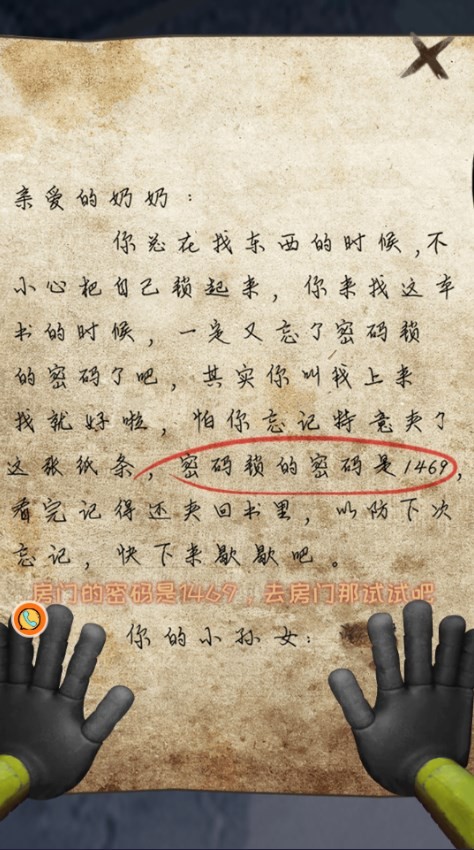 亲爱的奶奶：
你总在找东西的时候，不
小心把自己锁起来，你来找这本
书的时候，一定又忘了密码锁
的密码了吧，其实你叫我上来
找就好啦，怕你忘记特意夹了
这张纸条，密码锁的密码是1469，
看完记得还夹回书里，以防下次
忘记，快下来歇歇吧。
房门的密码是1469，去房门那试试吧
你的小孙女：